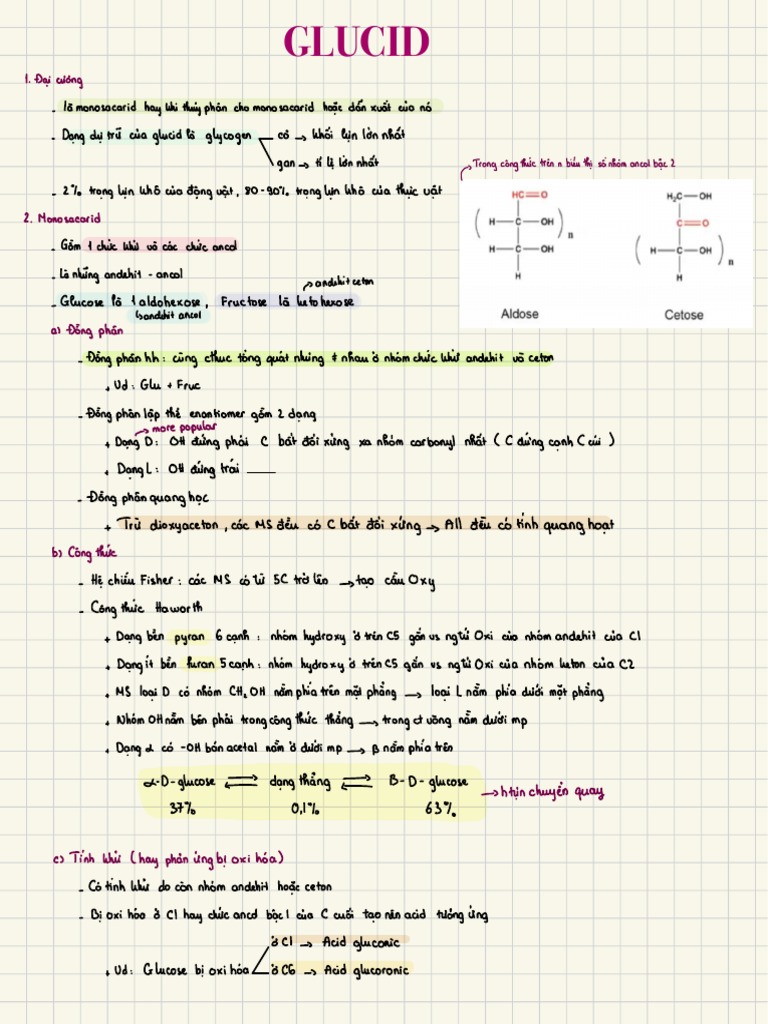 GLUCID
1. Đại cương
- là monosacarid hay khi thủy phân cho monosacarid hoặc dẫn xuất của nó
- Dạng dự trữ của glucid là glycogen
cơ → khối lựn lớn nhất
gan → tỉ lệ lớn nhất
- 2% trọng lựn khô của động vật, 80-90% trọng lựn khô của thực vật
Trong công thức trên n biểu thị số nhóm ancol bậc 2
HC=O
H—C—OH
n
H—C—OH
H
Aldose
H₂C—OH
C=O
H—C—OH
n
H
Cetose
2. Monosacarid
- Gồm 1 chức khử và các chức ancol
- Là những andehit - ancol
→ andehit ceton
- Glucose là 1 aldohexose, Fructose là ketohexose
↳ andehit ancol
a) Đồng phân
- Đồng phân hh: cùng cthuc tổng quát nhưng ≠ nhau ở nhóm chức khử andehit và ceton
+ Vd: Glu + Fruc
- Đồng phân lập thể enantiomer gồm 2 dạng
→ more popular
+ Dạng D: OH đứng phải C bất đối xứng xa nhóm carbonyl nhất ( C đứng cạnh C cúi )
+ Dạng L: OH đứng trái ——
- Đồng phân quang học
+ Trừ dioxyaceton, các MS đều có C bất đối xứng → All đều có tính quang hoạt
b) Công thức
- Hệ chiếu Fisher: các MS có từ 5C trở lên → tạo cầu Oxy
- Công thức Haworth
+ Dạng bền pyran 6 cạnh: nhóm hydroxy ở trên C5 gắn vs ng tử Oxi của nhóm andehit của C1
+ Dạng ít bền furan 5 cạnh: nhóm hydroxy ở trên C5 gắn vs ng tử Oxi của nhóm keton của C2
+ MS loại D có nhóm CH₂OH nằm phía trên mặt phẳng → loại L nằm phía dưới mặt phẳng
+ Nhóm OH nằm bên phải trong công thức thẳng → trong ct vòng nằm dưới mp
+ Dạng α có -OH bán acetal nằm ở dưới mp → β nằm phía trên
α-D-glucose ⇌ dạng thẳng ⇌ β-D-glucose → htựn chuyển quay
37% 0,1% 63%
c) Tính khử (hay phản ứng bị oxi hóa)
- Có tính khử do còn nhóm andehit hoặc ceton
- Bị oxi hóa ở C1 hay chức ancol bậc 1 của C cuối tạo nên acid tương ứng
ở C1 → Acid gluconic
+ Vd: Glucose bị oxi hóa
ở C6 → Acid glucoronic